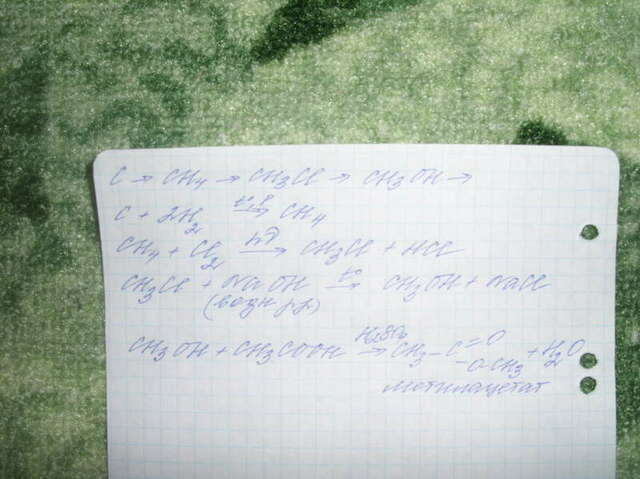 C → CH4 → CH3Cl → CH3OH →
C + 2H2 t°, p → CH4
CH4 + Cl2 hν → CH3Cl + HCl
CH3Cl + NaOH t° → CH3OH + NaCl
(водн р-р)
CH3OH + CH3COOH H2SO4 → CH3 - C = O - O - CH3 + H2O
метилацетат